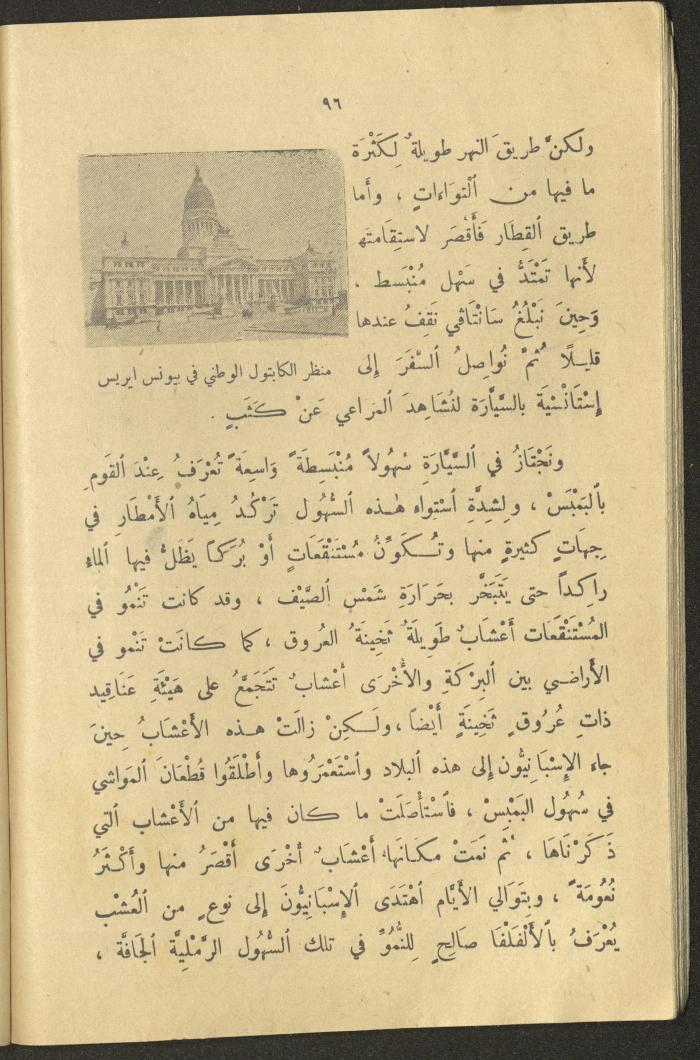 ٩٦
ولكنَّ طريقَ النهر طويلةٌ لِكَثْرَة
ما فيها من ٱلْتوَاءَاتٍ ، وأما
طريق ٱلقِطَار فَأَقْصَر لاستِقَامتَه
لأَنها تَمْتَدُّ في سَهْل مُنْبَسط .
وَحِينَ نَبْلُغُ سَانْتَافي نَقِفُ عندها
قليلًا ثُمْ نُواصِلُ ٱلسَّفَرَ إلى
منظر الكابتول الوطني في بيونس ايريس
إِسْتَانْسْيَة بالسَّيَّارَة لنُشَاهِدَ ٱلمَرَاعي عَنْ كَثَبٍ .
ونَجْتَازُ في ٱلسَّيَّارَةِ سُهُولاً مُنْبَسِطَةً وَاسِعَةً تُعْرَفُ عِنْدَ ٱلقَومِ
بِٱلبَمْبَسْ ، ولِشِدَّةِ ٱسْتِواءِ هٰذه ٱلسُّهُول تَرْكُدُ مِيَاهُ ٱلأَمْطَارِ في
جِهَاتٍ كثيرةٍ منها وتُكَوِّنُ مُسْتَنْقَعَاتٍ أَوْ بُرَكاً يَظَلُّ فيها ٱلماءِ
راكِداً حتى يَتَبَخَّر بحَرَارَةِ شَمْسِ ٱلصَّيْف ، وقد كانت تَنْمُو في
المُسْتَنْقَعَات أَعْشَابٌ طَوِيلَةٌ ثَخِينَةُ العُروق ، كما كانَتْ تَنْمو في
الأَراضي بين ٱلبِرْكَةِ والأُخْرَى أَعْشَابٌ تَتَجَمَّعُ على هَيْئَةِ عَنَاقِيد
ذاتِ عُرُوقٍ ثَخِينَةٍ أَيْضاً ، ولَكِنْ زالَتْ هذه الأَعْشَابُ حِينَ
جاءِ الإِسْبَانِيُّون إلى هذه ٱلبلاد وٱسْتَعْمَرُوها وأَطْلَقُوا قُطْعَانَ ٱلمَواشي
في سُهُول البَمْبِسْ ، فٱسْتَأْصَلَتْ ما كان فيها من ٱلأَعْشاب ٱلتي
ذَكَرْنَاهَا ، ثُم نَمَتْ مكانَهَا أَعْشَابٌ أُخْرَى أَقْصَرُ منها وأَكْثَرُ
نُعُومَةً ، وبِتَوَالي الأَيَّام ٱهْتَدَى ٱلإِسْبَانِيُّونَ إلى نوعٍ من ٱلعُشْب
يُعْرَفُ بٱلأَلْفَلْفَا صَالِحٍ لِلنُّمُوِّ في تلك ٱلسُّهُول الرَّمْلِيَّة ٱلجَافَّة ،